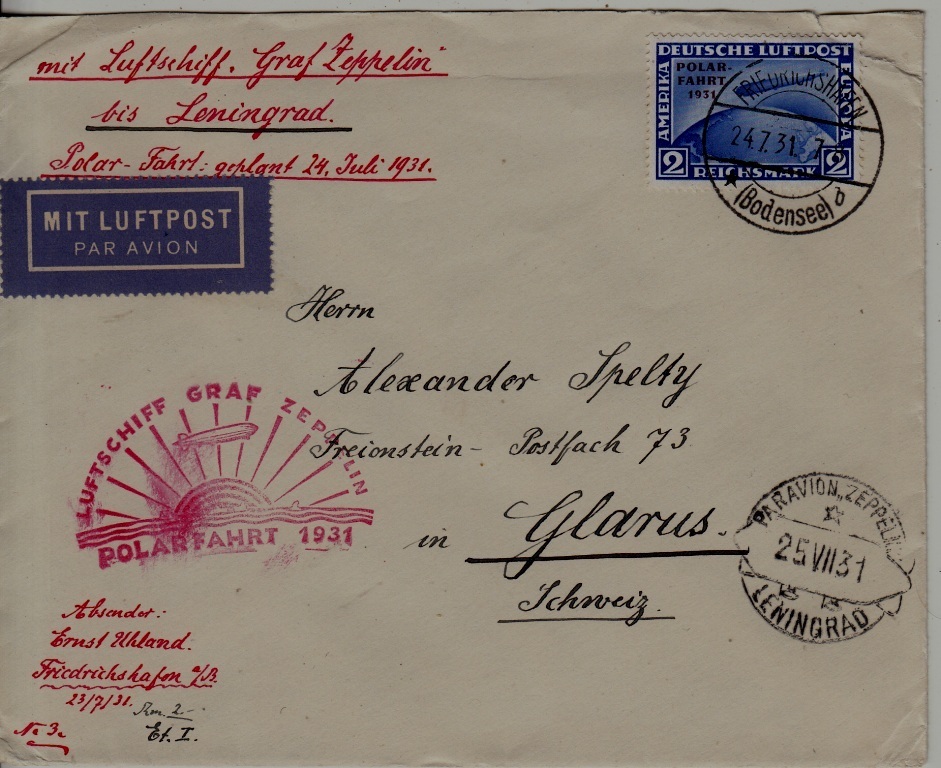 mit Luftschiff. Graf Zeppelin"
bis Leningrad.
Polar-Fahrt: geplant 24. Juli 1931.
DEUTSCHE LUFTPOST
POLAR-
FAHRT
1931
AMERIKA
EUROPA
2 REICHSMARK 2
FRIEDRICHSHAFEN
24.7.31. 7
(Bodensee) d
MIT LUFTPOST
PAR AVION
Herrn
Alexander Spelty
Freionstein - Postfach 73
in Glarus.
Schweiz.
LUFTSCHIFF GRAF ZEPPELIN
POLARFAHRT 1931
PAR AVION „ZEPPELIN
25 VII 31
LENINGRAD
Absender:
Ernst Uhland.
Friedrichshafen a/B.
23/7/31.
Rm. 2.-
Et. I.
No 3.